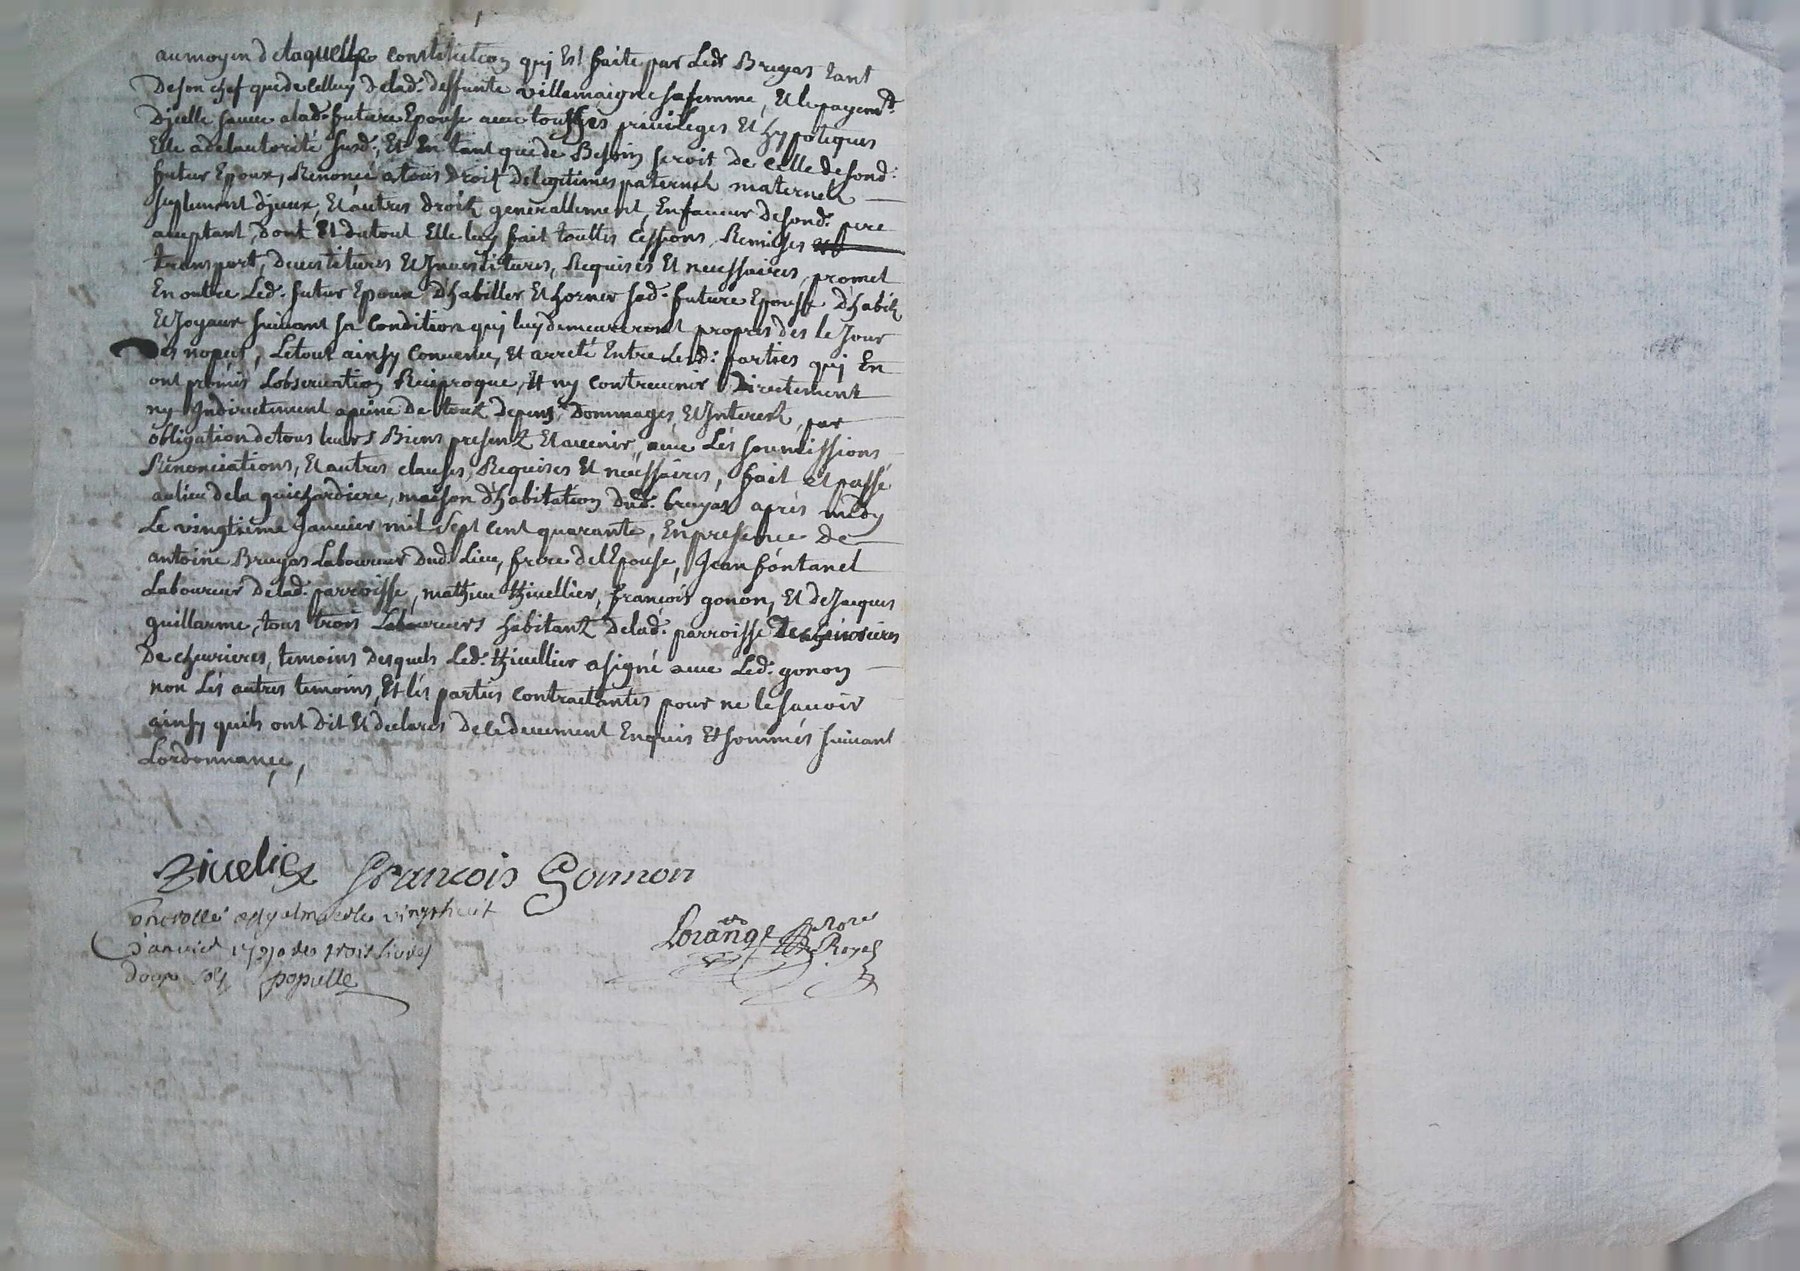 au moyen de laquelle constitution quj Est faite par Ledt Bruyas tant
De son chef que de Celluy delad: deffunte villemaigne sa femme, Et le payemt
Djcelle sauue alad: future Epouse auec touttes preuileges Et hypoteques
Elle a de lautorité susd:, Et En tant que de Besoin seroit de Celle de sond:
futur Epoux, Renoncé a tous droit de legitimes paternels maternels
suplement djceux, Et autres droits generallement, En faueur de sond: pere
acceptant, dont Et du tout Elle luy fait touttes Cessions, Remises
transport, deuestitures Et Jnuestitures, Requises Et necessaires, promet
En outre Led: futur Epoux Dhabiller Et horner sad: future Epouse D'habits
Et Joyaux suiuant sa Condition quj luy demeureront propres des le Jour
Des nopces, Le tout ainsy Conuenu, Et arreté Entre Lesd: parties quj En
ont promis Lobseruation Reciproque, Et ny contreuenir Directement
ny Indirectement a peine de tous depens, Dommages, Et Interests, par
obligation de tous leurs Biens presents Et auenir, auec Les soumissions
Renonciations, Et autres clauses, Requises Et necessaires, fait et passé
au lieu de la guichardiere, maison d'habitation dud: bruyas après midy
Le vingtieme Januier mil sept cent quarante, En presence de
antoine Bruyas Laboureur Dud: Lieu, frere de l'Epouse, Jean fontanel
Laboureur De lad: parroisse, mathieu thiuellier, françois gonon, Et de Jacques
guillarme, tous trois Laboureurs habitants de lad: parroisse
De cheurieres, temoins desquels Led: thiuellier a signé auec Led: gonon
non Les autres temoins, Et les parties Contractantes pour ne le sauoir
ainsy quils ont dit Et declarés de Ce deuement Enquis Et sommés suiuant
Lordonnance,
François Gonnon
Controllé vingt huit
Januier 1740 trois Liures
Douze sols populle
Lorange no.re
Royal